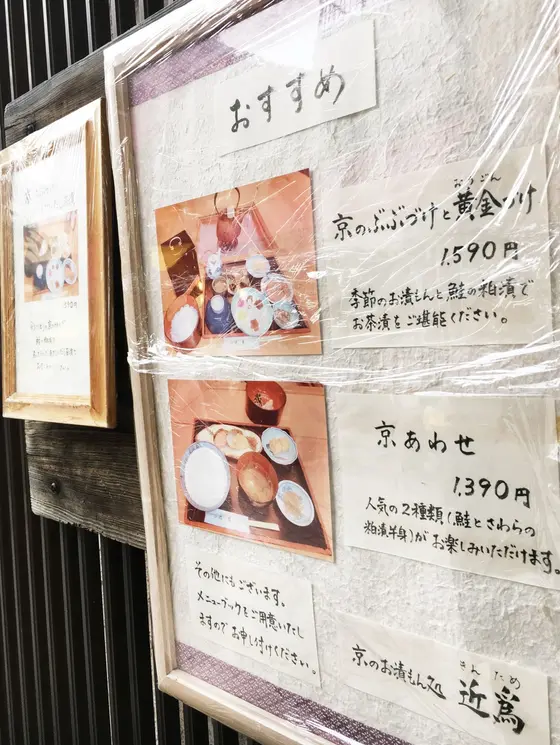 おすすめ
京のぶぶづけと黄金づけ
おうごん
1.590円
季節のお漬もんと鮭の粕漬で
お茶漬をご堪能ください。
京あわせ
1.390円
人気の2種類(鮭とさわらの
粕漬半身)がお楽しみいただけます。
その他にもございます。
メニューブックをご用意いたし
ますのでお申し付けください。
京のお漬もん処
きん ため
近為